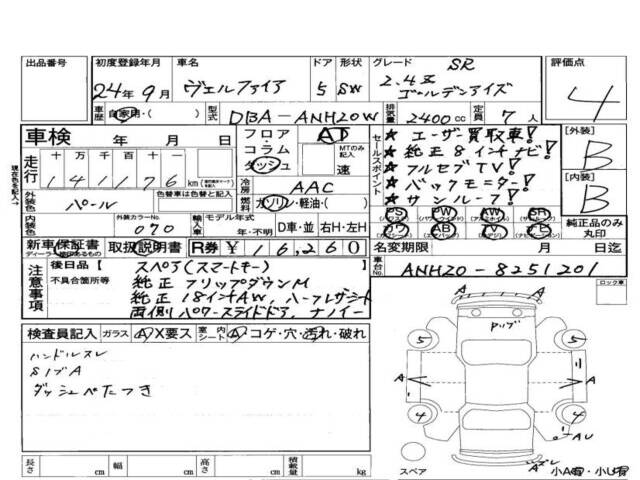 出品番号 初度登録年月 車名 ドア 形状 グレード 評価点
24年9月 ヴェルファイア 5 SW 2.4Z SR
ゴールデンアイズ
4
車歴 自家用・( ) 型式 DBA-ANH20W 排気量 2400cc 定員 7人
車検 年 月 日
フロア・コラム・ダッシュ AT MTのみ記入 速
セールスポイント
★ユーザー買取車!
★純正8インチナビ!
★フルセグTV!
★バックモニター!
★サンルーフ!
[外装] B
[内装] B
現在色を記入→
走行 十 万 千 百 十
141176 km
冷房 AAC
外装色 パール 色替車は元色
燃料 ガソリン・軽油・( )
PS PW AW SR
カワ AB TV ナビ
純正品のみ丸印
内装色 外装カラーNo. 070 輸入車 モデル年式 年・不明 D車・並 右H・左H
新車保証書 取扱説明書 R券 ¥16,260
名変期限 月 日迄
車台No. ANH20-8251201
注意事項
後日品 [スペア(スマートキー)
不具合箇所等
純正フリップダウンM
純正18インチAW, ハーフレザーシート
両側パワースライドドア, ナノイー
ロック車
検査員記入 ガラス A X要ス 室内シート A・コゲ・穴・汚れ・破れ
ハンドルスレ
ダッシュベたつき
Pリブ
5 5
A A
4 4
スペア
小A有・小U有
長さ cm 幅 cm 高さ cm 積載量 kg